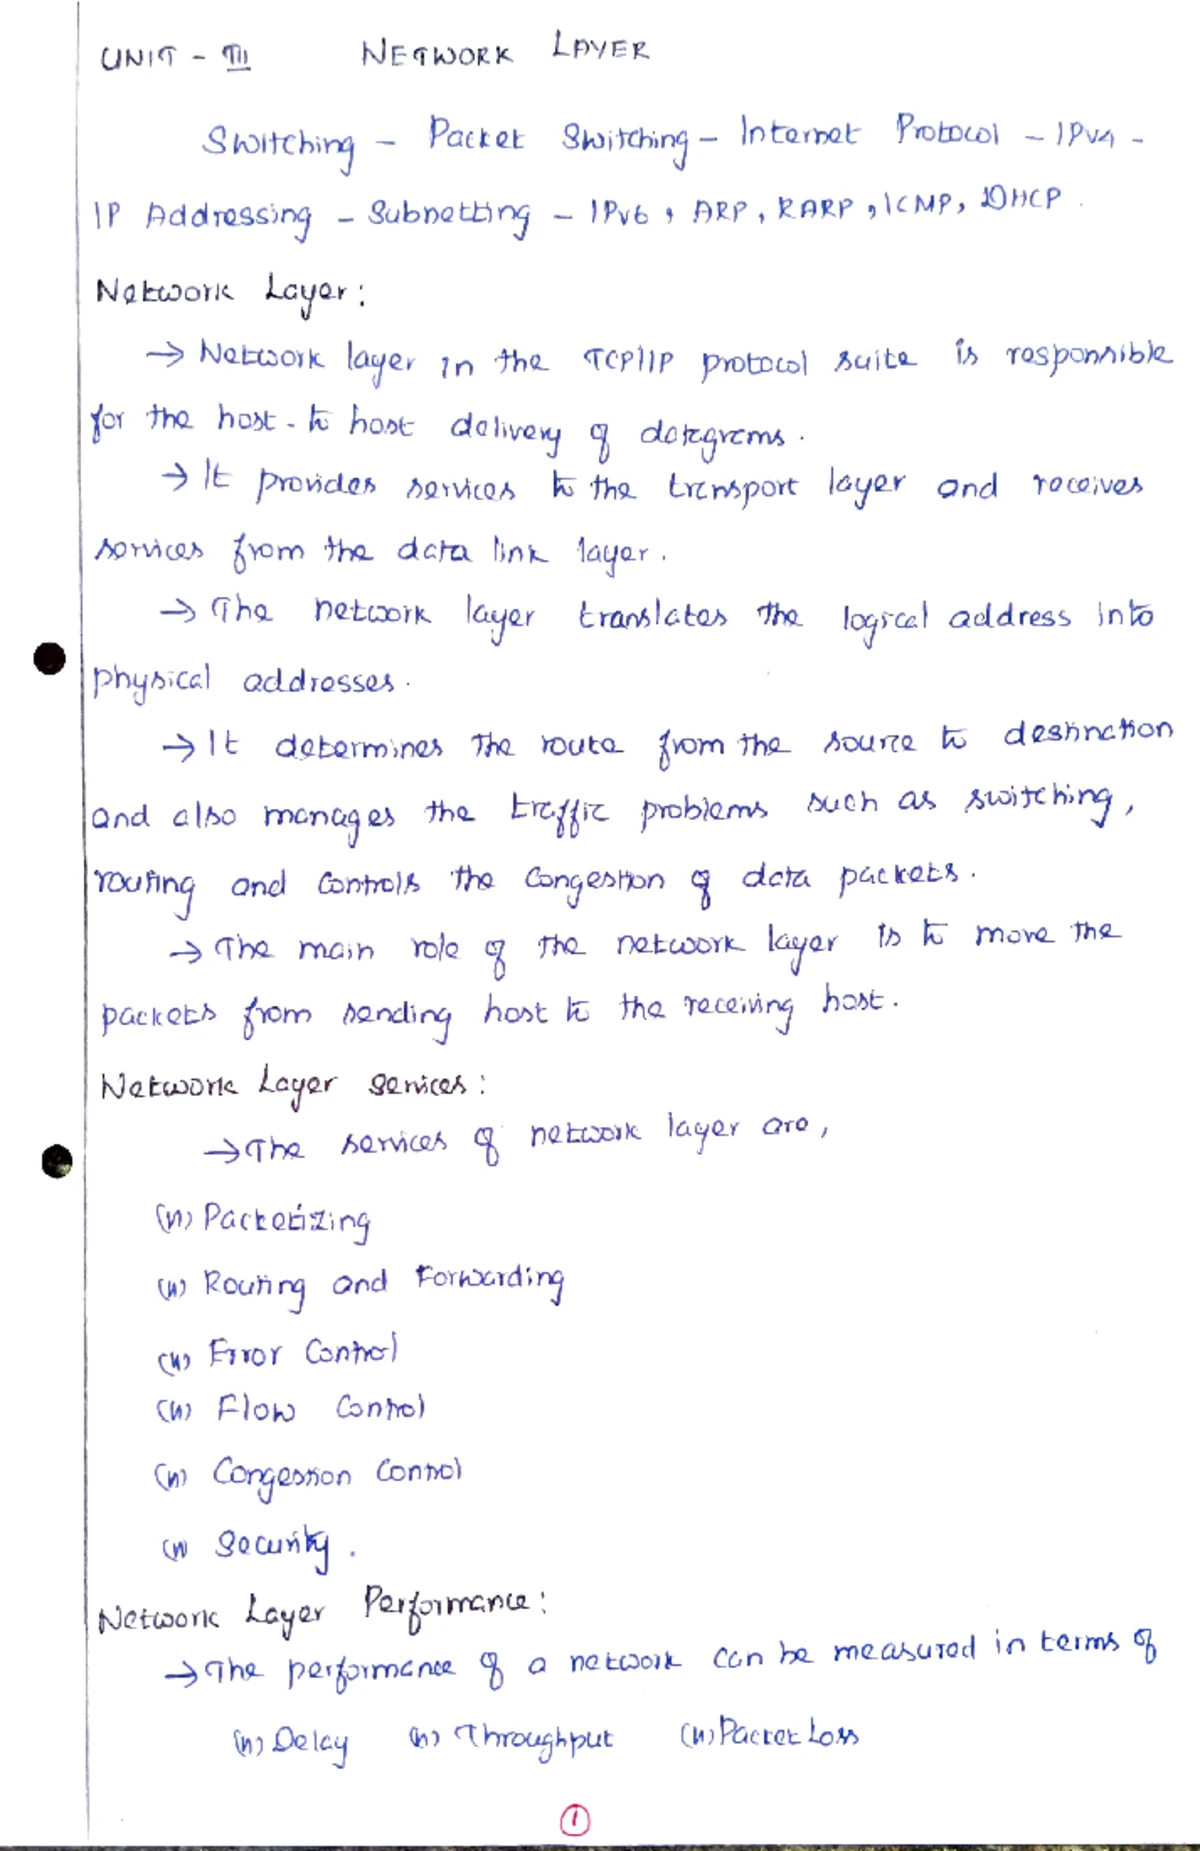 UNIT - III NETWORK LAYER
Switching - Packet Switching - Internet Protocol - IPV4 -
IP Addressing - Subnetting - IPV6, ARP, RARP, ICMP, DHCP.
Network Layer:
→ Network layer in the TCP/IP protocol suite is responsible
for the host-to host delivery of datagrams.
→ It provides services to the transport layer and receives
services from the data link layer.
→ The network layer translates the logical address into
physical addresses.
→ It determines the route from the source to destination
and also manages the traffic problems such as switching,
routing and controls the congestion of data packets.
→ The main role of the network layer is to move the
packets from sending host to the receiving host.
Network Layer Services:
→ The services of network layer are,
Packetizing
Routing and Forwarding
Error Control
Flow Control
Congestion Control
Security.
Network Layer Performance:
→ The performance of a network can be measured in terms of
Delay Throughput Packet Loss
1